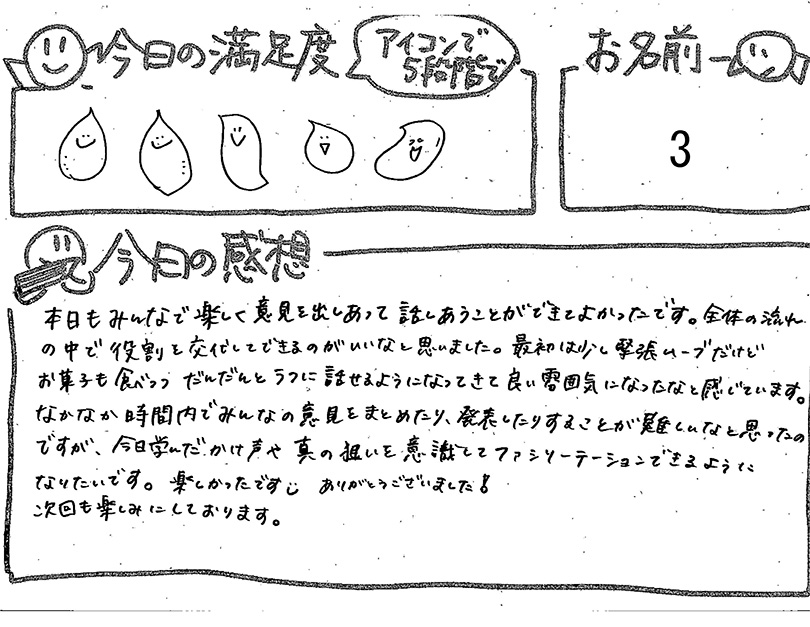 今日の満足度
アイコンで
5段階で
お名前
3
今日の感想
本日もみんなで楽しく意見を出しあって話しあうことができてよかったです。全体の流れ
の中で役割を交代してできるのがいいなと思いました。最初は少し緊張ムーブだけど
お菓子も食べつつ だんだんとラフに話せるようになってきて良い雰囲気になったなと感じています。
なかなか時間内でみんなの意見をまとめたり、発表したりすることが難しいなと思ったの
ですが、今日学んだかけ声や真の狙いを意識してファシリーテーションできるように
なりたいです。楽しかったです ありがとうございました!
次回も楽しみにしております。